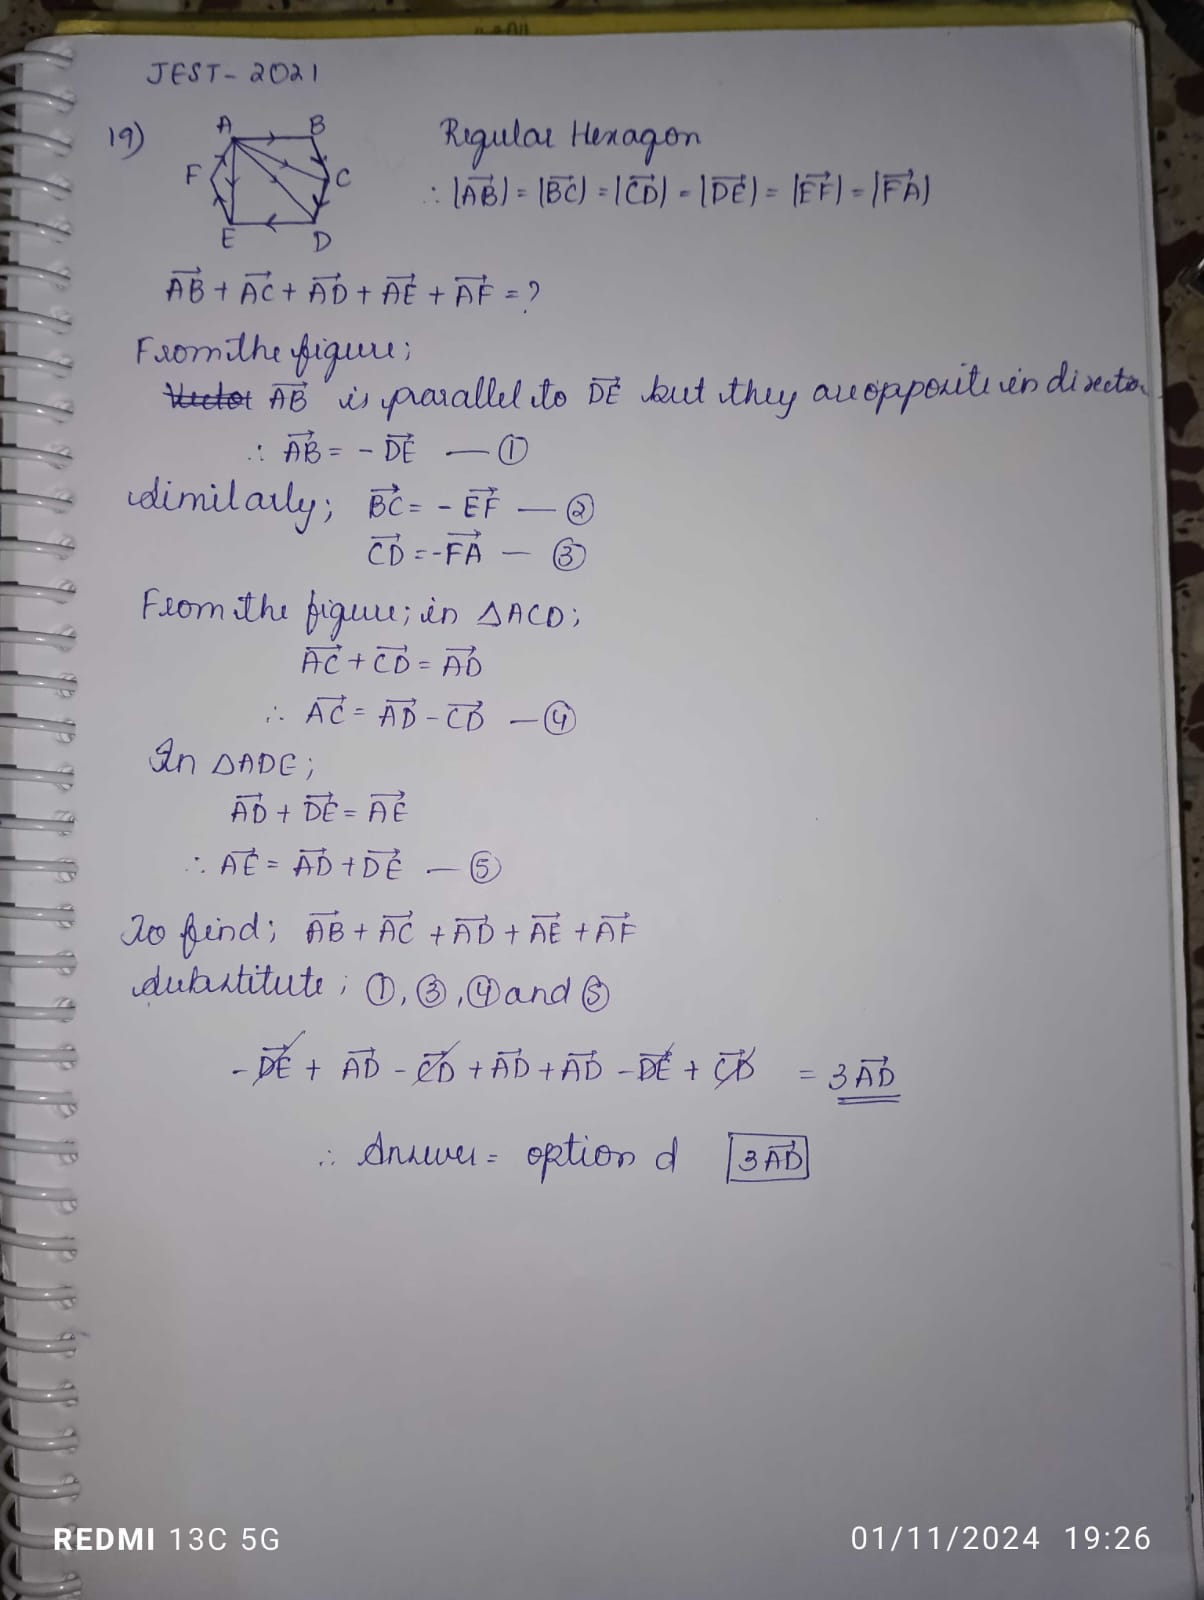 JEST-2021
19)
A B
F C
E D
Regular Hexagon
∴ |AB⃗| = |BC⃗| = |CD⃗| = |DE⃗| = |EF⃗| = |FA⃗|
AB⃗ + AC⃗ + AD⃗ + AE⃗ + AF⃗ = ?
From the figure;
Vector AB⃗ is parallel to DE⃗ but they are opposite in directio
∴ AB⃗ = - DE⃗ — ①
Similarly; BC⃗ = - EF⃗ — ②
CD⃗ = -FA⃗ — ③
From the figure; in △ACD;
AC⃗ + CD⃗ = AD⃗
∴ AC⃗ = AD⃗ - CD⃗ — ④
In △ADE;
AD⃗ + DE⃗ = AE⃗
∴ AE⃗ = AD⃗ + DE⃗ — ⑤
To find; AB⃗ + AC⃗ + AD⃗ + AE⃗ + AF⃗
Substitute; ①, ③, ④ and ⑤
- DE⃗ + AD⃗ - CD⃗ + AD⃗ + AD⃗ - DE⃗ + CD⃗ = 3AD⃗
∴ Answer = option d 3AD⃗
REDMI 13C 5G
01/11/2024 19:26